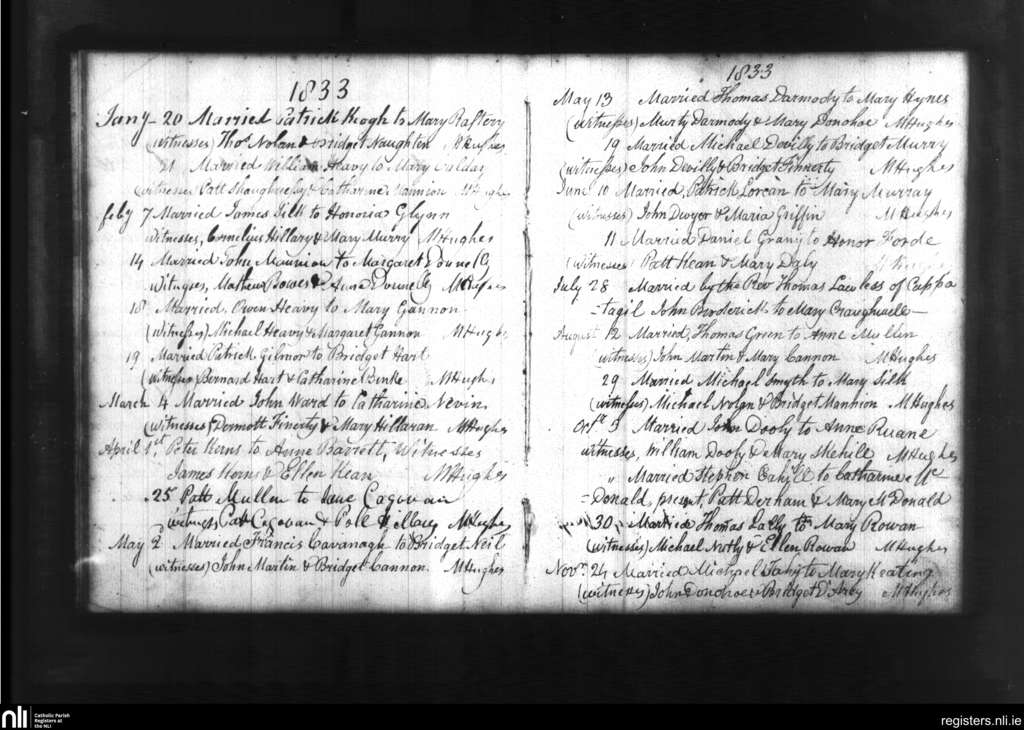 1833
Jany 20 Married Patrick Keogh to Mary Raftery
(witnesses) Thos Nolan & Bridget Naughten MHughes
21 Married William Heavy to Mary
(witnesses Patt Shaughnessy & Catharine Mannion MHughes
Feby 7 Married James Silk to Honoria Glynn
Witnesses, Cornelius Hillary & Mary Murry MHughes
14 Married John Mannion to Margaret
Witnesses, Mathew Bowes & Anne MHughes
18 Married Owen Heavy to Mary Gannon
(Witnesses) Michael Heavy & Margaret Gannon MHughes
19 Married Patrick Gilmor to Bridget Hart
(Witnesses Bernard Hart & Catharine Burke MHughes
March 4 Married John Ward to Catharine Nevin
(witnesses Dermott Finerty & Mary Hillaran MHughes
April 1st Peter Kerns to Anne Barrett, Witnesses
James Kerns & Ellen Kean MHughes
25 Patt Mullen to Jane Cagovan
witness Patt Cagovan & Poll MHughes
May 2 Married Francis Cavanagh to Bridget Neil
(witnesses) John Martin & Bridget Cannon. MHughes
1833
May 13 Married Thomas Darmody to Mary Hynes
(witnesses) Murty Darmody & Mary Donohoe MHughes
19 Married Michael Devilly to Bridget Murry
(witnesses) John Devilly & Bridget Finnerty MHughes
June 10 Married Patrick Lorcan to Mary Murray
(witnesses) John Dwyer & Maria Griffin MHughes
11 Married Daniel Grany to Honor Forde
(witnesses) Patt Kean & Mary Daly MHughes
July 28 Married by the Rev Thomas Lawless of Cappa
=tagil John Broderick to Mary Craughwell
August 12 Married Thomas Green to Anne Mullin
witnesses) John Martin & Mary Cannon MHughes
29 Married Michael Smyth to Mary Silk
(witnesses) Michael Nolan & Bridget Mannion MHughes
5 Married John Dooly to Anne Ruane
witnesses, William Dooly & Mary Skehill MHughes
" Married Stephen Cahill to Catharine Mc
=Donald, present, Patt Derham & Mary McDonald
30 Married Thomas Lally to Mary Rowan
(witnesses) Michael & Ellen Rowan MHughes
Novr 24 Married Michael Fahy to Mary Keating
(witnesses) John Donohoe & Bridget D'Arcy MHughes
nli
Catholic Parish
Registers at
the NLI
registers.nli.ie